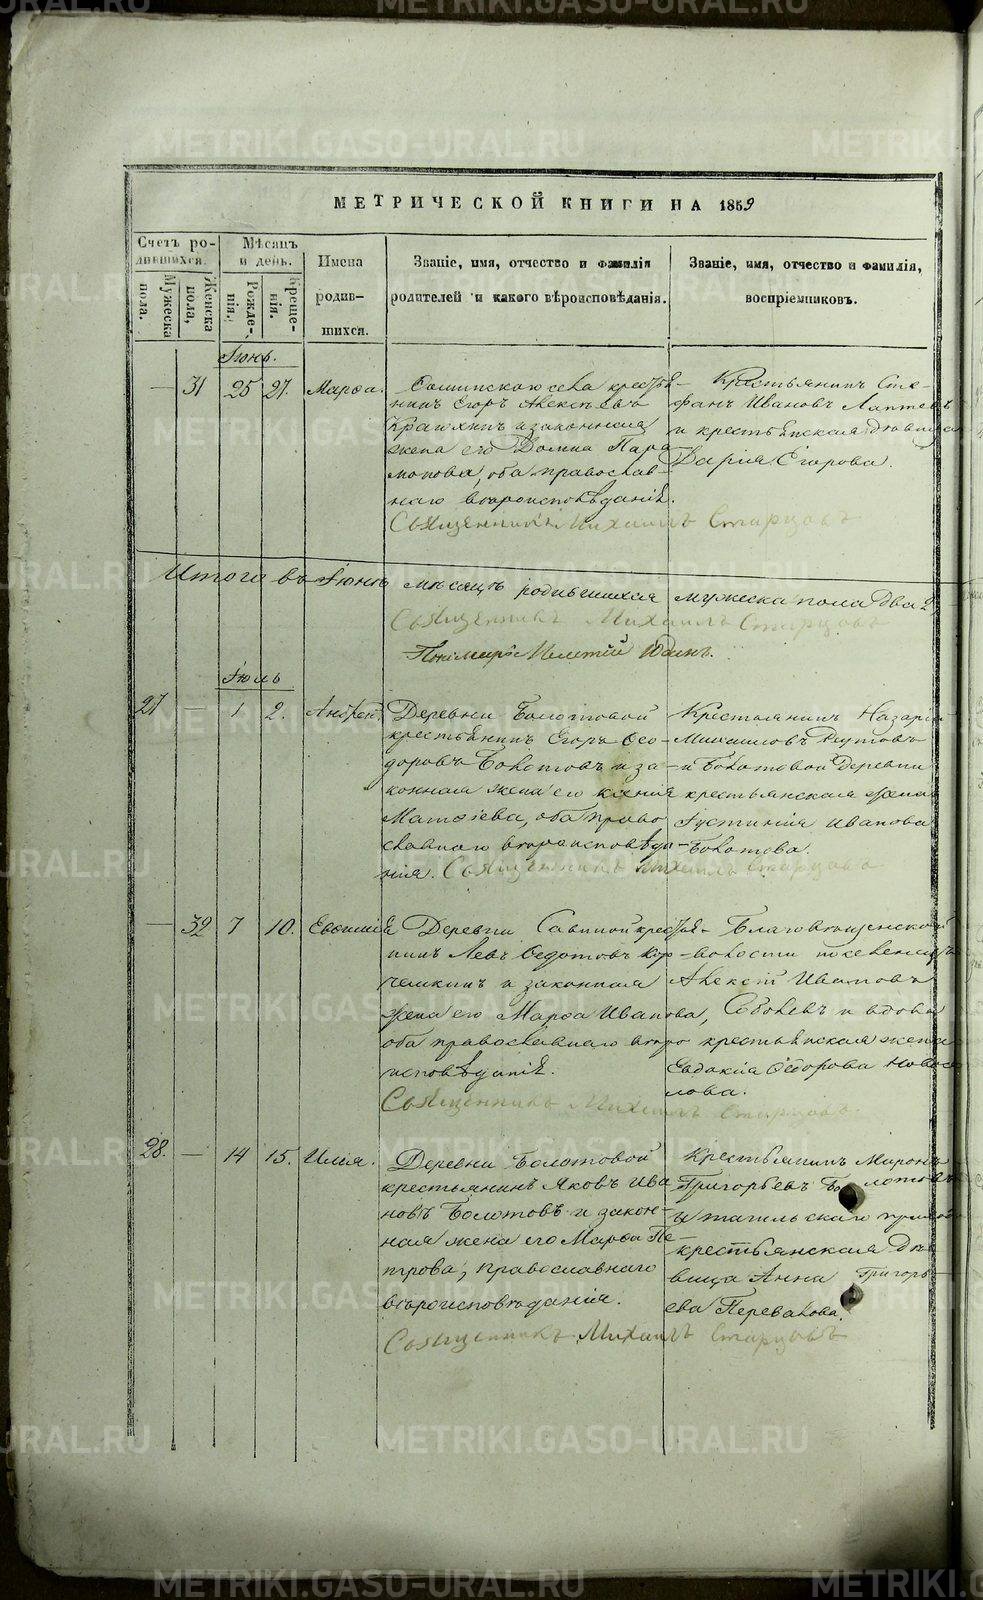 МЕТРИЧЕСКОЙ КНИГИ НА 1859
Счетъ ро-
дившихся.
Мужеска пола.
Женска пола,
Мѣсяцъ
и день.
Рожде-
нія.
Креще-
нія.
Имена
родив-
шихся.
Званіе, имя, отчество и фамилія
родителей и какого вѣроисповѣданія.
Званіе, имя, отчество и фамилія,
воспріемниковъ.
Іюнь.
— 31 25 27. Марѳа.
села кресть-
нинъ Егоръ Алексѣевъ
и законная
жена его Домна Пара
монова, оба православ-
наго вѣроисповѣданія.
Священникъ Михаилъ Старцовъ
Крестьянинъ Сте-
фанъ Ивановъ Лаптевъ
и крестьянская дѣвица
Дарія Егорова.
Итого въ Іюнѣ мѣсяцѣ родившихся мужеска пола два 2
Священникъ Михаилъ Старцовъ
Пономарь
Іюль
27 — 1 2. Андрей.
Деревни Болотовой
крестьянинъ Егоръ Ѳео-
доровъ Болотовъ и за-
конная жена его Ксенія
Матѳіева, оба право
славнаго вѣроисповѣда-
нія. Священникъ Михаилъ Старцовъ
Крестьянинъ Назарій
Михаиловъ
и Болотовой деревни
крестьянская жена
Іустинія Иванова
Болотова.
— 32 7 10. Евѳимія
Деревни Савиной кресть-
нинъ Левъ Ѳедотовъ Кор-
чемкинъ и законная
жена его Марѳа Иванова,
оба православнаго вѣро
исповѣданія.
Священникъ Михаилъ Старцовъ
Благовѣщенской
волости поселенецъ
Алексѣй Ивановъ
Соболевъ и вдова
крестьянская жена
Евдокія Ѳедорова Новосе
лова.
28. — 14 15. Илія.
Деревни Болотовой
крестьянинъ Яковъ Ива
новъ Болотовъ и закон-
ная жена его Марѳа Пе-
трова, православнаго
вѣроисповѣданія.
Священникъ Михаилъ Старцовъ
Крестьянинъ Миронъ
Григорьевъ Болотовъ
и тагильскаго
крестьянская дѣ-
вица Анна Григорь-
ева Перевалова.
METRIKI.GASO-URAL.RU